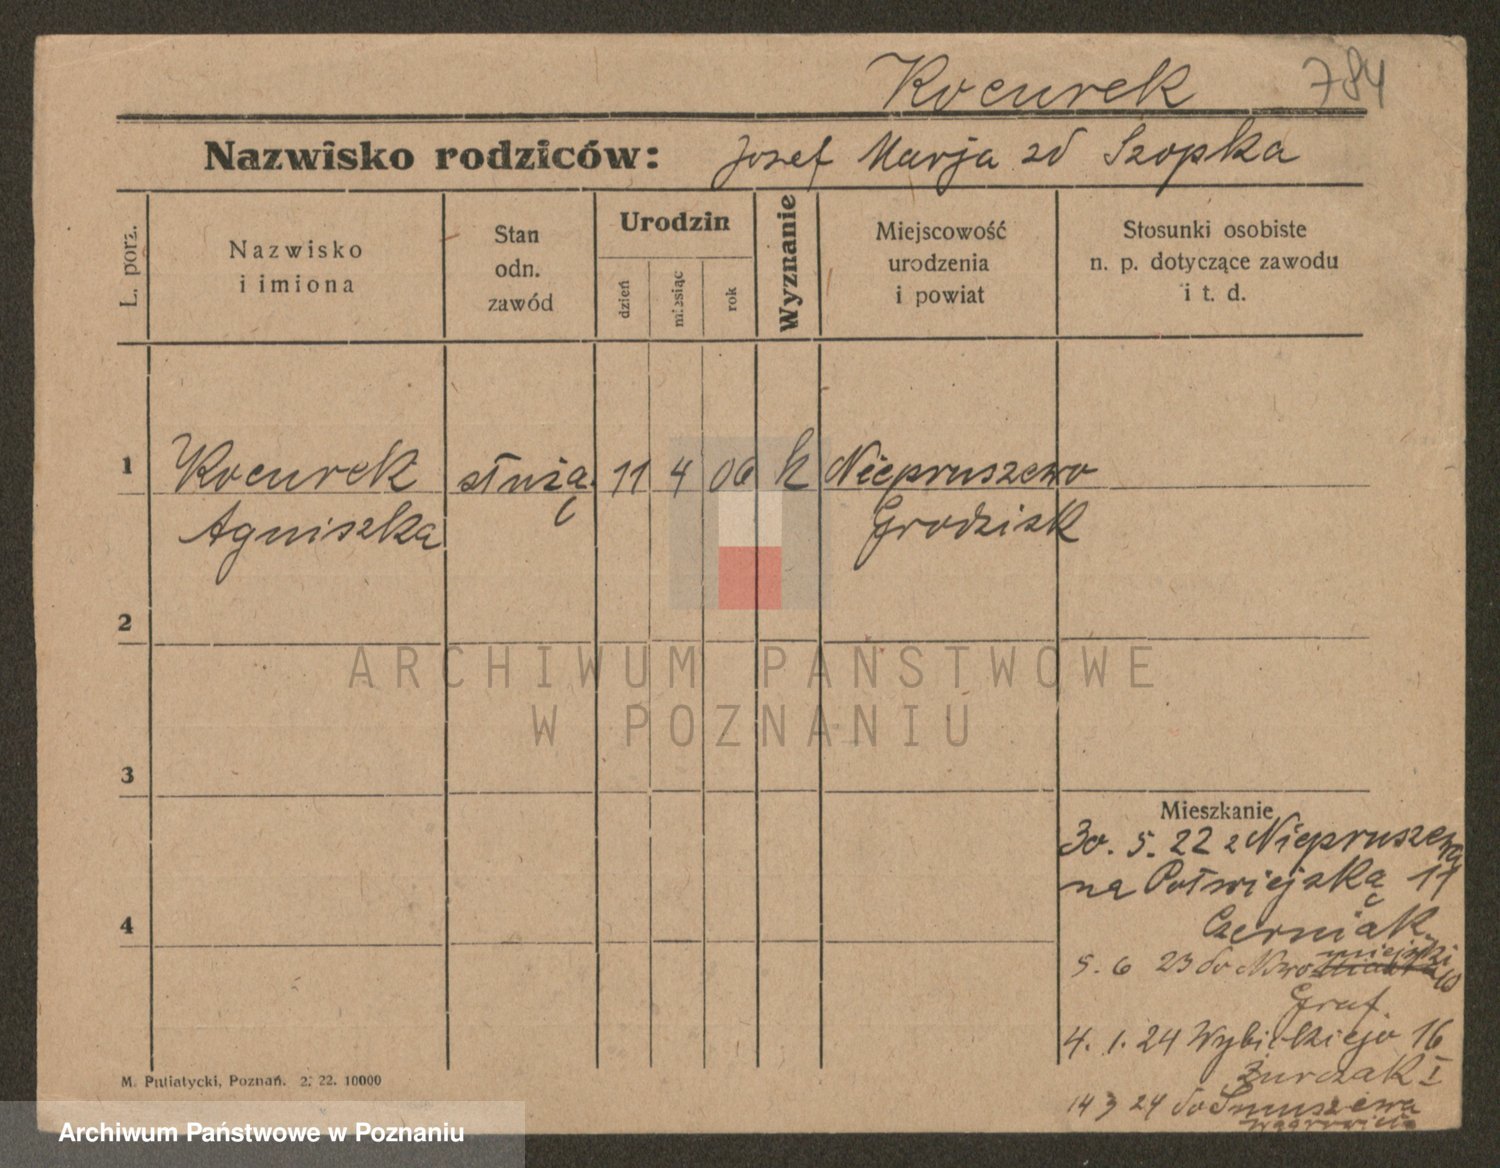 Kocurek 784
Nazwisko rodziców: Jozef Marja zd Szopka
L. porz.
Nazwisko
i imiona
Stan
odn.
zawód
Urodzin
dzień
miesiąc
rok
Wyznanie
Miejscowość
urodzenia
i powiat
Stosunki osobiste
n. p. dotyczące zawodu
i t. d.
1 Kocurek służą. 11 4 06 k Niepruszewo
Agniszka Grodzisk
2
ARCHIWUM PAŃSTWOWE
W POZNANIU
3
Mieszkanie
30. 5. 22 z Niepruszewa
na Półwiejską 11
Czerniak
4
miejski
5. 6 23 do Nowo 10
Graf
4. 1. 24 Wybickiejo 16
Żurczak I
14 3 24 do
M. Putiatycki, Poznań. 2. 22. 10000
Archiwum Państwowe w Poznaniu